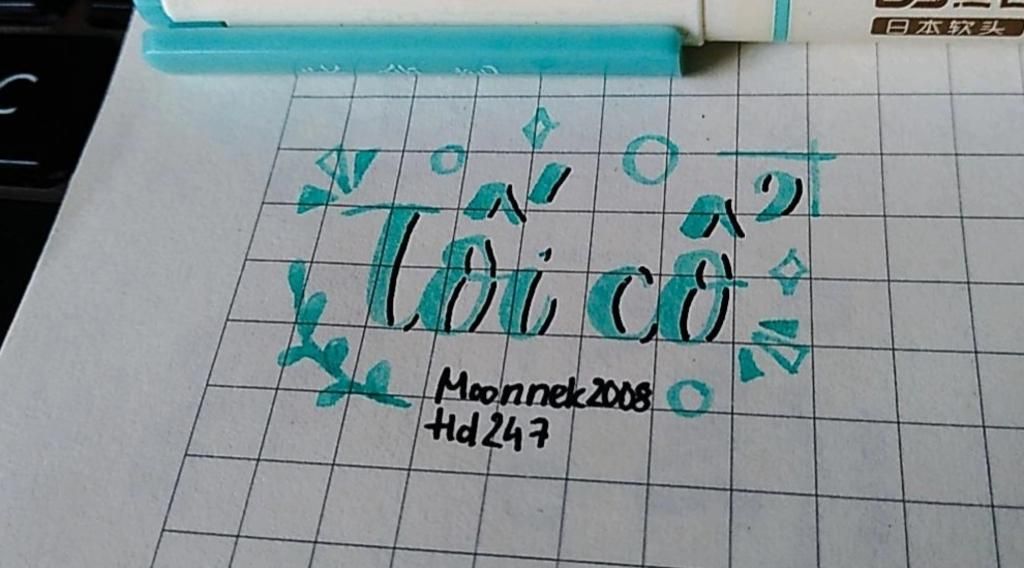 日本软头
Tối cổ
Moonnek2008
Hd247